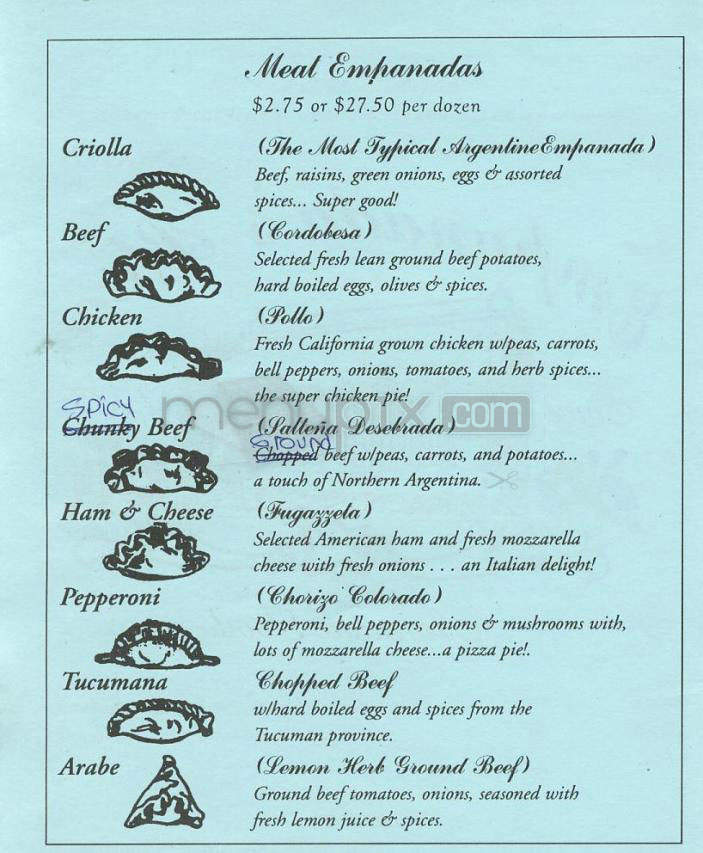 Meat Empanadas
$2.75 or $27.50 per dozen
Criolla (The Most Typical Argentine Empanada)
Beef, raisins, green onions, eggs & assorted
spices... Super good!
Beef (Cordobesa)
Selected fresh lean ground beef potatoes,
hard boiled eggs, olives & spices.
Chicken (Pollo)
Fresh California grown chicken w/peas, carrots,
bell peppers, onions, tomatoes, and herb spices...
the super chicken pie!
SPICY
Chunky Beef (Salteña Desebrada)
GROUND
Chopped beef w/peas, carrots, and potatoes...
a touch of Northern Argentina.
menupix.com
Ham & Cheese (Fugazzela)
Selected American ham and fresh mozzarella
cheese with fresh onions . . . an Italian delight!
Pepperoni (Chorizo Colorado)
Pepperoni, bell peppers, onions & mushrooms with,
lots of mozzarella cheese...a pizza pie!.
Tucumana Chopped Beef
w/hard boiled eggs and spices from the
Tucuman province.
Arabe (Lemon Herb Ground Beef)
Ground beef tomatoes, onions, seasoned with
fresh lemon juice & spices.